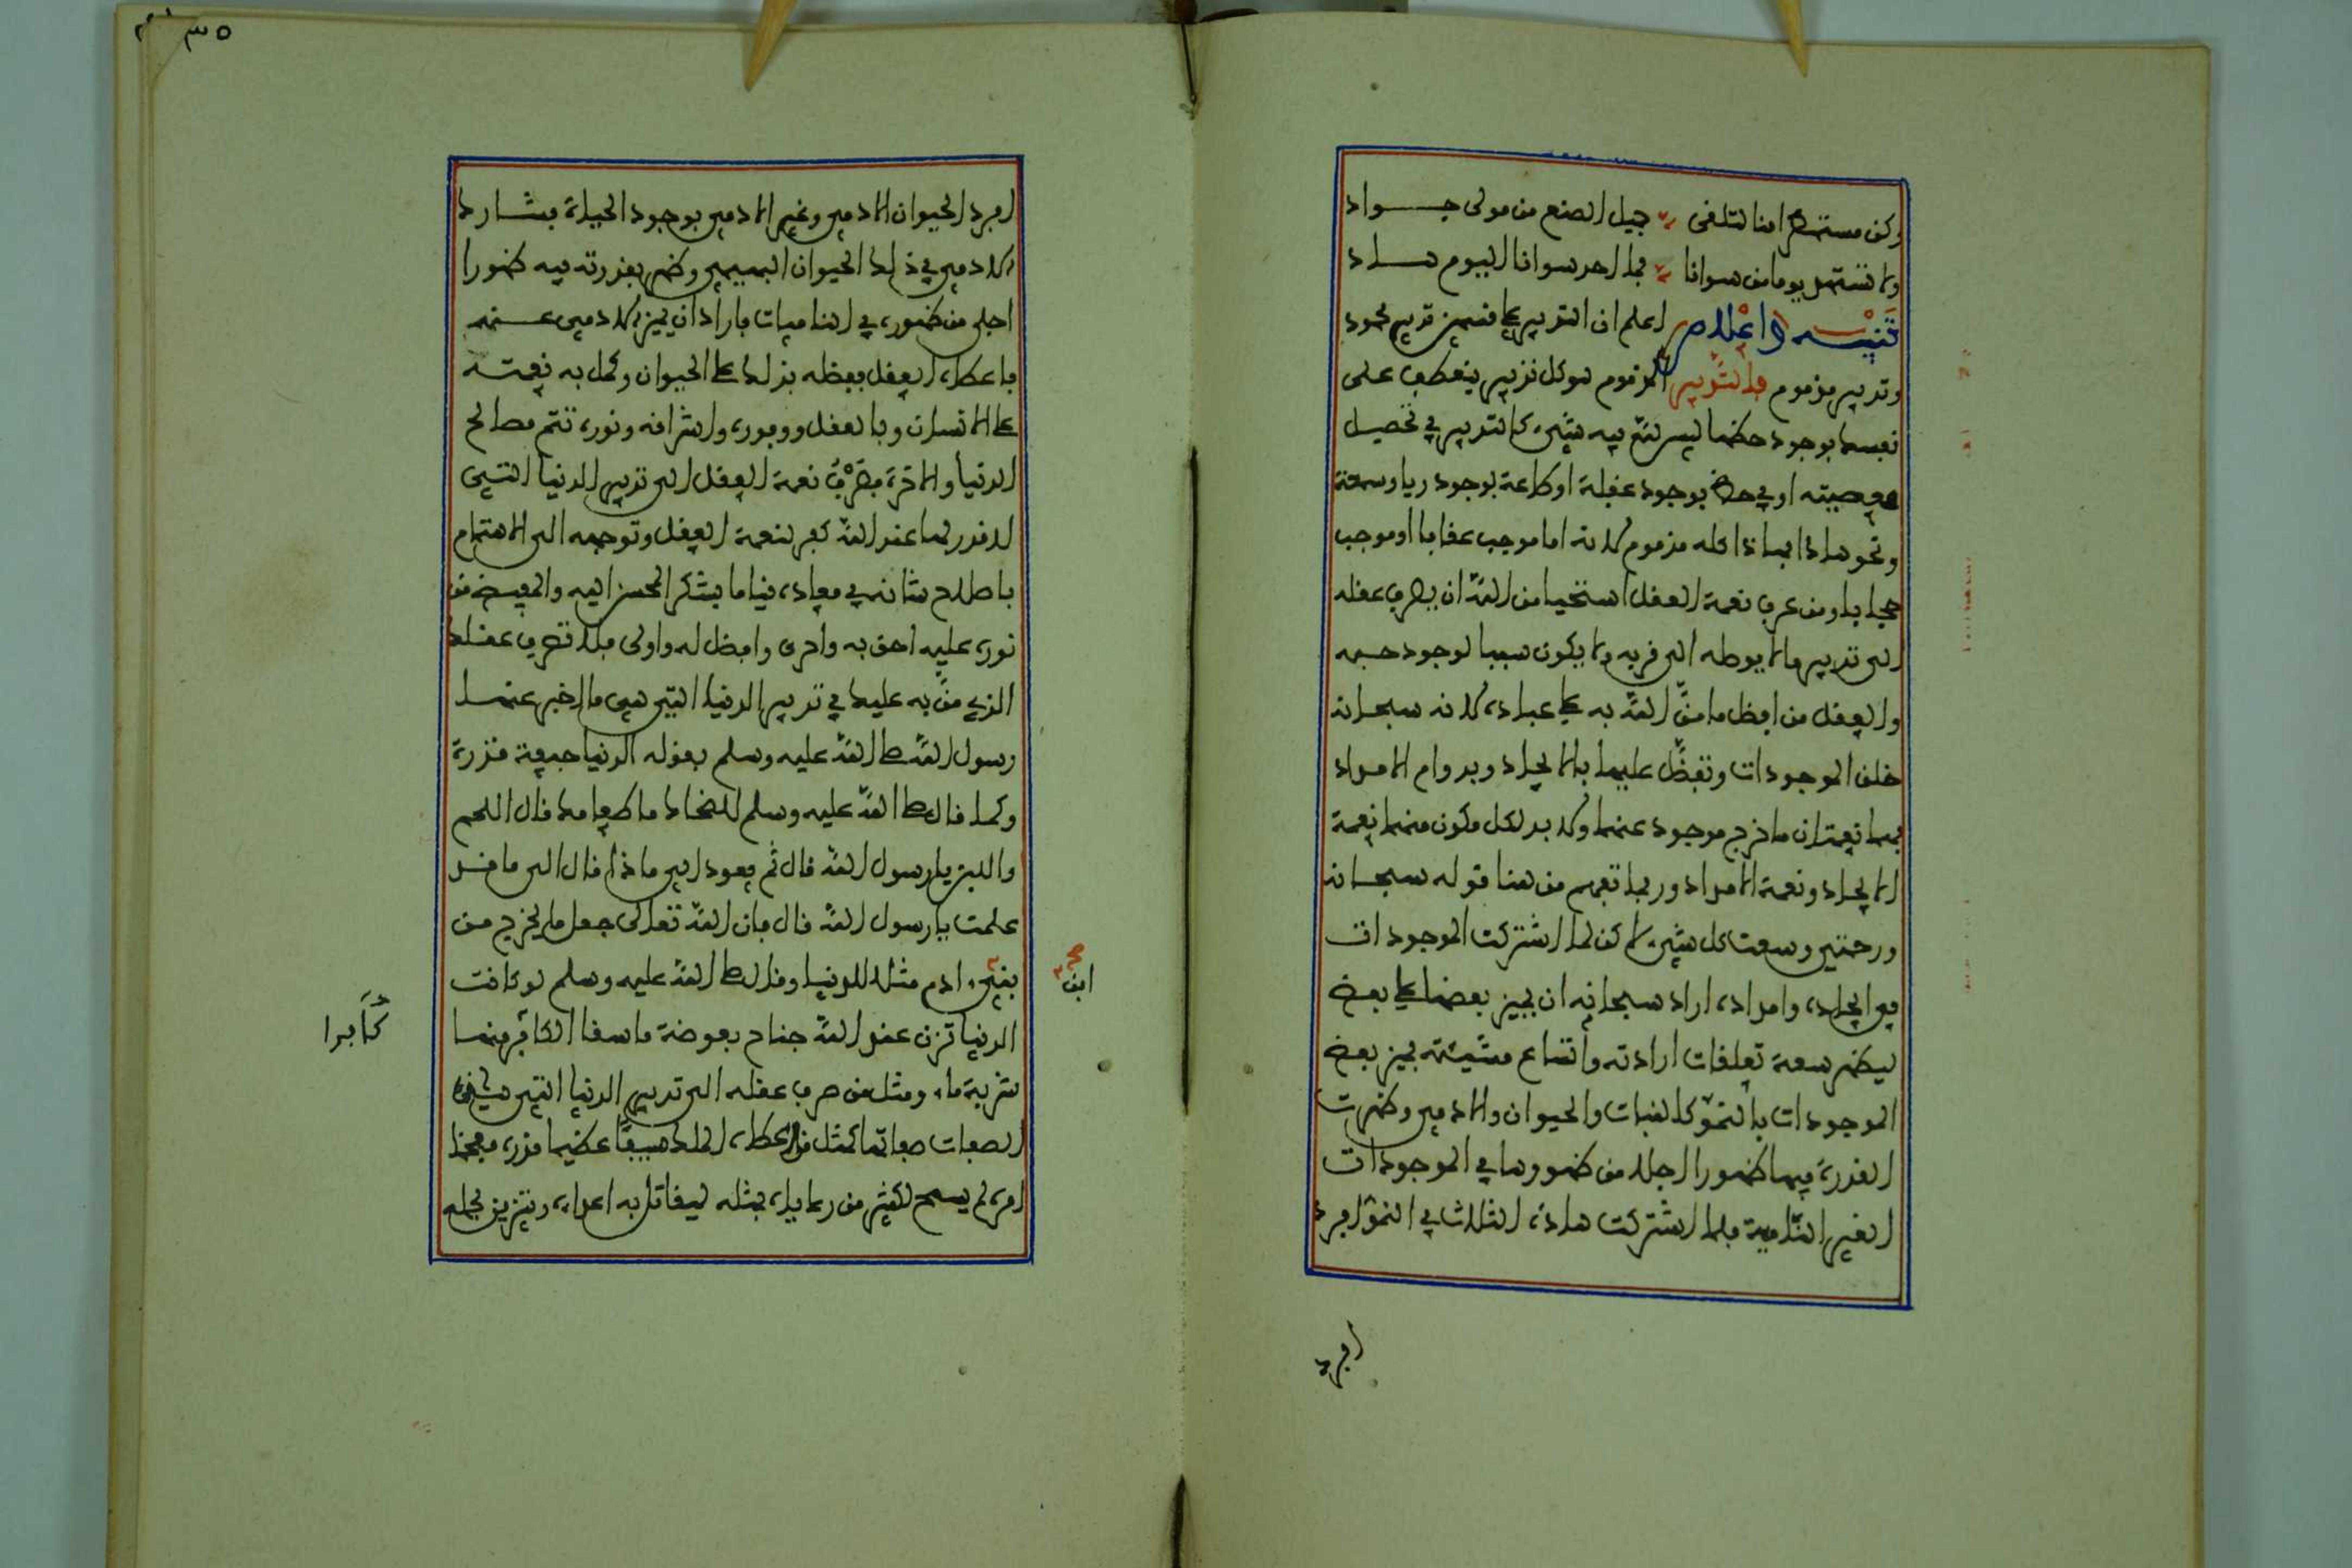 وكن مستمطرا منا لتلقى جميل الصنع من مولى جواد
ولا تستهد يوما من سوانا فما احد سوانا اليوم هاد
تنبيه واعلام اعلم ان التدبير على قسمين تدبير محمود
وتدبير مذموم فالتدبير المذموم هو كل تدبير ينعطف على
نفسك بوجود حظها ليس لله فيه شيء كالتدبير في تحصيل
معصيته او في حظ بوجود غفلة او طاعة بوجود ريا وسمعة
ونحو هاذا فهاذا كله مذموم لانه اما موجب عقابا او موجب
حجابا ومن عرف نعمة العقل استحيا من الله ان يصرف عقله
الى تدبير ما لا يوصله الى قربه ولا يكون سببا لوجود حبه
والعقل من افضل ما من الله به على عباده لانه سبحانه
خلق الموجودات وتفضل عليها بالايجاد وبدوام الامداد
فهما نعمتان ما خرج موجود عنهما ولا بد لكل مكون منهما نعمة
الايجاد ونعمة الامداد وربما تفهم من هنا قوله سبحانه
ورحمتي وسعت كل شيء لاكن لما اشتركت الموجودات
في ايجاده وامداده اراد سبحانه ان يميز بعضا على بعض
ليظهر سعة تعلقات ارادته واتساع مشيئته فميز بعض
الموجودات بالنمو كالنبات والحيوان والادمي وظهرت
القدرة فيها ظهورا اجلا من ظهورها في الموجودات
الغير النامية فلما اشتركت هاذه الثلاث في النمو افرد
افرد
٣٥
افرد الحيوان الادمي وغير الادمي بوجود الحياة فشارك
الادمي في ذلك الحيوان البهيمي وظهر بقدرته فيه ظهورا
اجلى من ظهوره في الناميات فاراد ان يميز الادمي عنه
فاعطاه العقل ففضله بذلك على الحيوان وكمل به نعمته
على الانسان وبالعقل ووفوره واشراقه ونوره تتم مصالح
الدنيا والاخرة فصرف نعمة العقل الى تدبير الدنيا التي
لا قدر لها عند الله كفر لنعمة العقل وتوجهه الى الاهتمام
باصلاح شانه في معاده قياما بشكر المحسن اليه والمفيض من
نوره عليه احق به واحرى وافضل له واولى فلا تصرف عقلك
الذي من به عليك في تدبير الدنيا التي هي ما اخبر عنها
رسول الله صلى الله عليه وسلم بقوله الدنيا جيفة قذرة
وكما قال صلى الله عليه وسلم للضحاك ما طعامك قال اللحم
واللبن يا رسول الله قال ثم يعود الى ماذا قال الى ما قد
علمت يا رسول الله قال فان الله تعالى جعل ما يخرج من
بني ادم مثلا للدنيا وقال صلى الله عليه وسلم لو كانت
ابن صح
الدنيا تزن عند الله جناح بعوضة ما سقا الكافر منها
كابرا
شربة ماء ومثل من صرف عقله الى تدبير الدنيا التي هي هذه
الصفات صفاتها كمثل من اعطاه الملك سيفا عظيما قدره مفخما
امره لم يسمح لكثير من رعاياه بمثله ليقاتل به اعداءه ويتزين بحمله